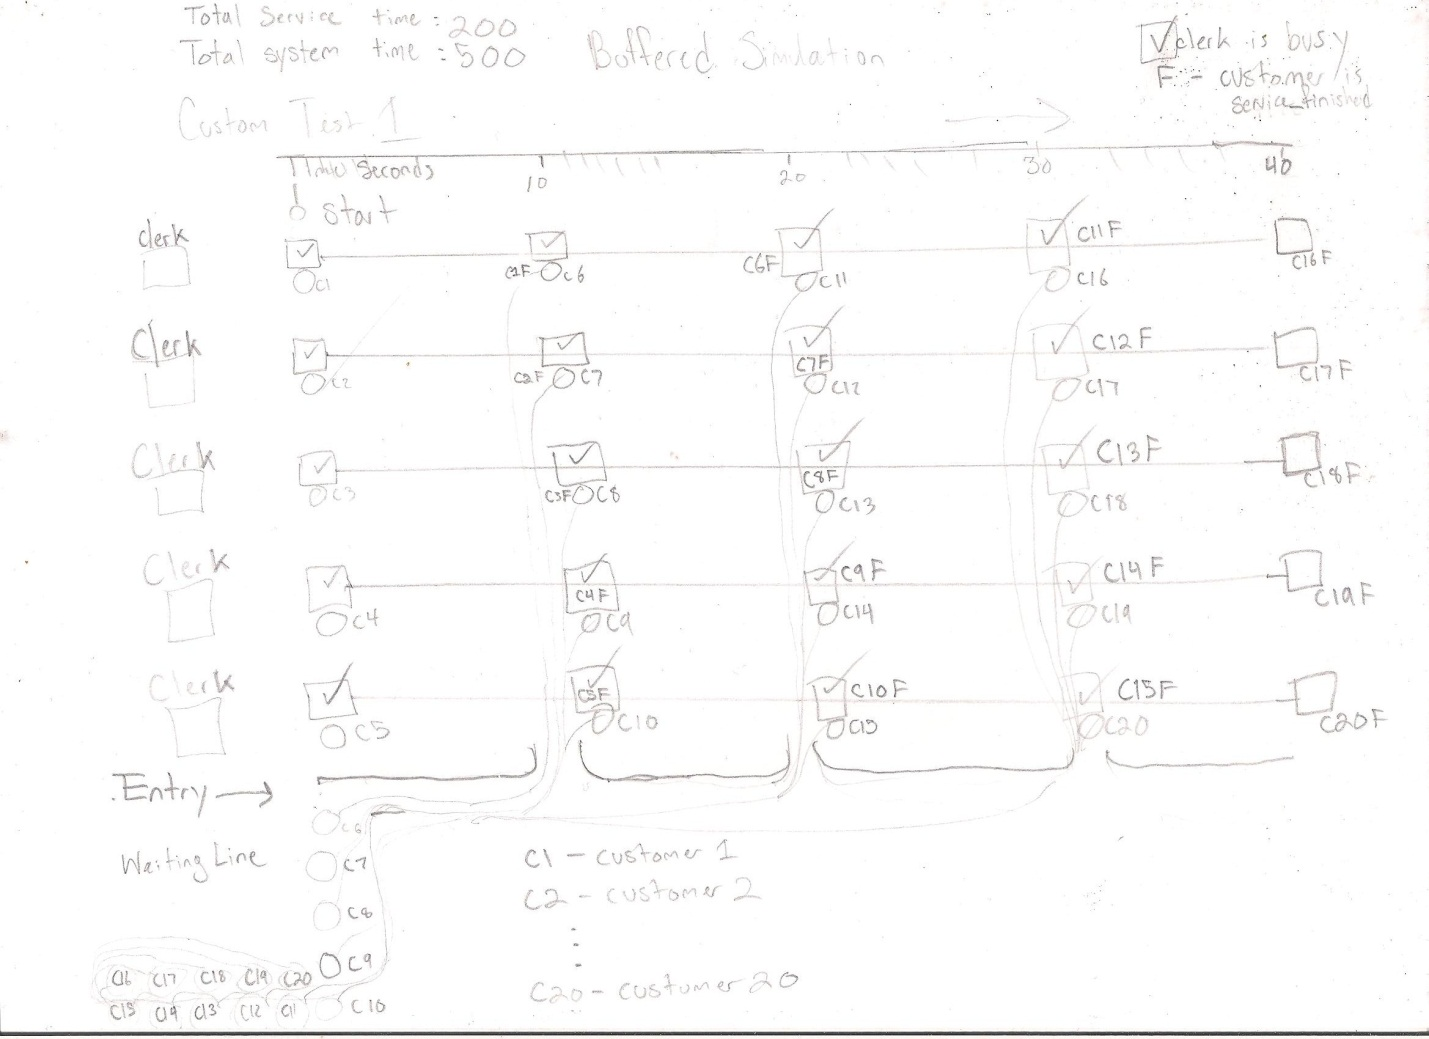 Total Service time : 200
Total system time : 500
Buffered Simulation
clerk is busy
F - customer is
service_finished
Custom Test 1
Time Seconds
10
20
30
40
start
clerk
C1
C1F
C6
C6F
C11
C11F
C16
C16F
Clerk
C2
C2F
C7
C7F
C12
C12F
C17
C17F
Clerk
C3
C3F
C8
C8F
C13
C13F
C18
C18F
Clerk
C4
C4F
C9
C9F
C14
C14F
C19
C19F
Clerk
C5
C5F
C10
C10F
C15
C15F
C20
C20F
Entry
C6
Waiting Line
C7
C8
C9
C10
C16 C17 C18 C19 C20
C15 C14 C13 C12 C11
C1 - customer 1
C2 - customer 2
C20 - customer 20